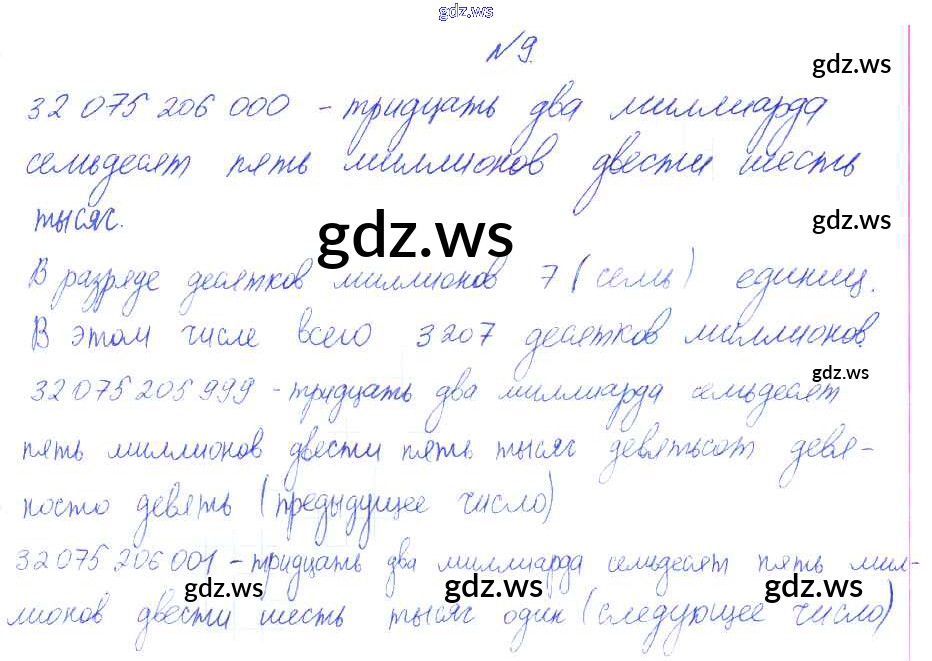 gdz.ws
N 9.
gdz.ws
32 075 206 000 - тридцать два миллиарда
семьдесят пять миллионов двести шесть
тысяч.
gdz.ws
gdz.ws
В разряде десятков миллионов 7 (семь) единиц.
В этом числе всего 3207 десятков миллионов.
gdz.ws
32 075 205 999 - тридцать два миллиарда семьдесят
пять миллионов двести пять тысяч девятьсот девя-
носто девять (предыдущее число)
32 075 206 001 - тридцать два миллиарда семьдесят пять мил-
gdz.ws gdz.ws gdz.ws
лионов двести шесть тысяч один (следующее число)